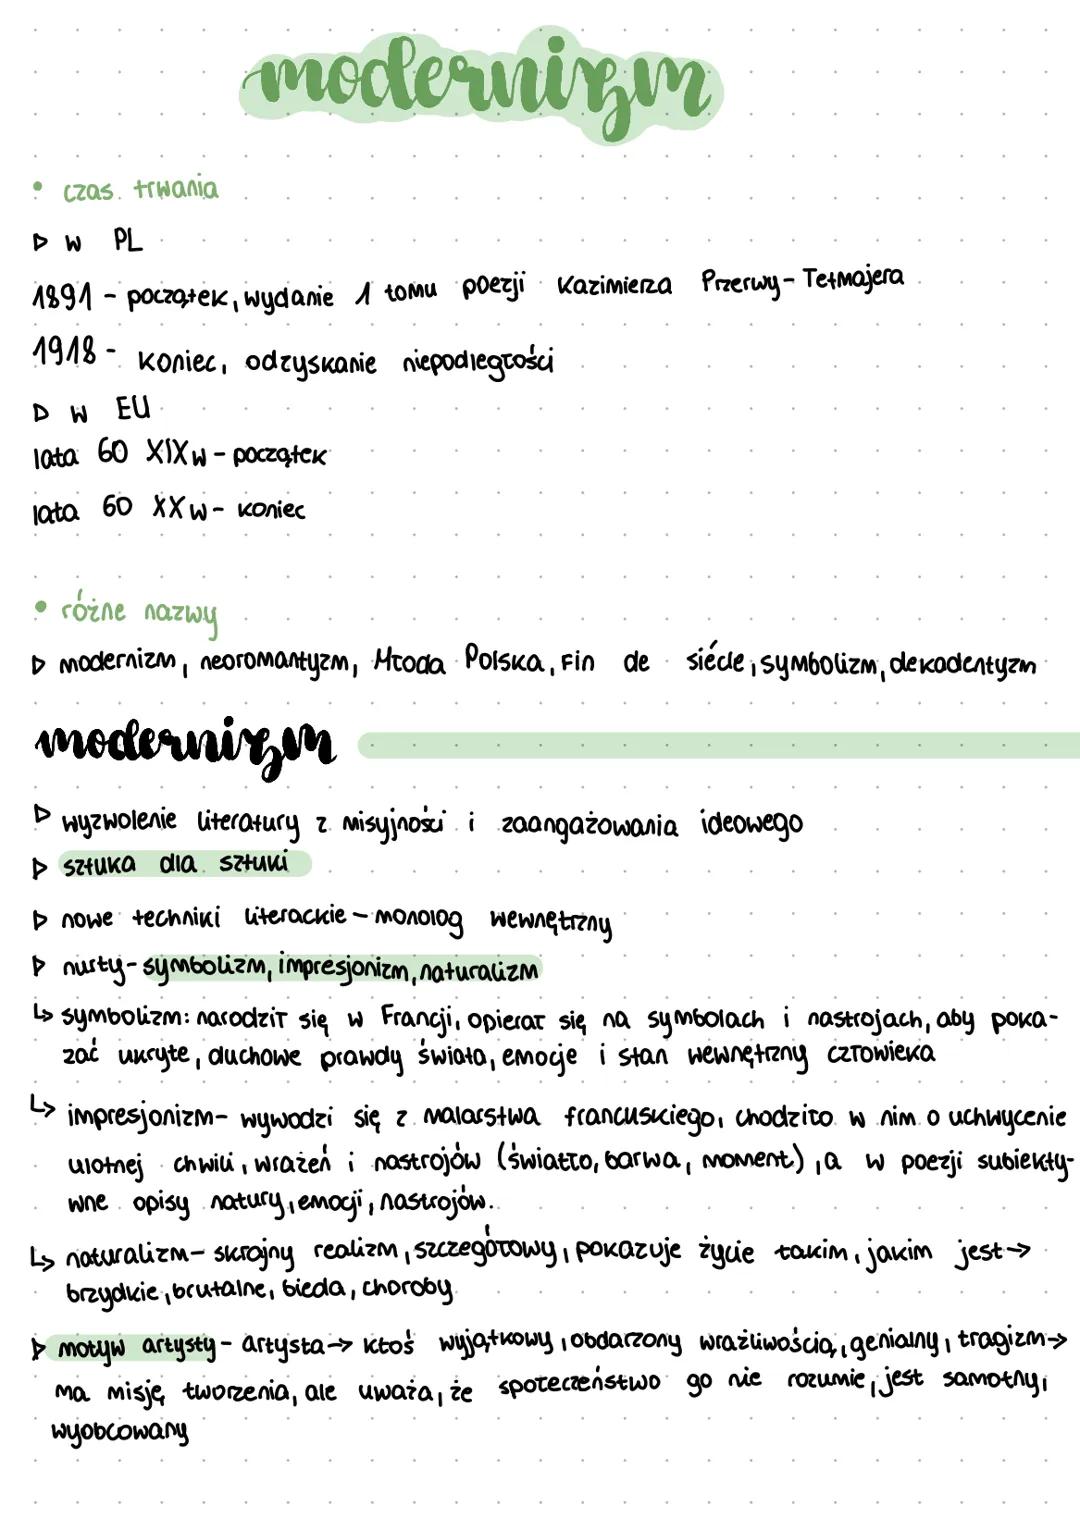 modernizm
• czas trwania
▷ w PL
1891 - początek, wydanie 1 tomu poezji Kazimierza Przerwy-Tetmajera
1918 - koniec, odzyskanie niepodległości
▷ w EU
lata 60 XIXw - początek
lata 60 XXw - koniec
• różne nazwy
▷ modernizm, neoromantyzm, Młoda Polska, Fin de siécle, symbolizm, dekadentyzm
modernizm
▷ wyzwolenie literatury z misyjności i zaangażowania ideowego
▷ sztuka dla sztuki
▷ nowe techniki literackie - monolog wewnętrzny
▷ nurty - symbolizm, impresjonizm, naturalizm
↳ symbolizm: narodził się w Francji, opierał się na symbolach i nastrojach, aby poka-
zać ukryte, duchowe prawdy świata, emocje i stan wewnętrzny człowieka
↳ impresjonizm - wywodzi się z malarstwa francuskiego, chodziło w nim o uchwycenie
ulotnej chwili, wrażeń i nastrojów (światło, barwa, moment), a w poezji subiekty-
wne opisy natury, emocji, nastrojów.
↳ naturalizm - skrajny realizm, szczegółowy, pokazuje życie takim, jakim jest →
brzydkie, brutalne, bieda, choroby
▷ motyw artysty - artysta → ktoś wyjątkowy, obdarzony wrażliwością, genialny, tragizm →
ma misję tworzenia, ale uważa, że społeczeństwo go nie rozumie, jest samotny,
wyobcowany